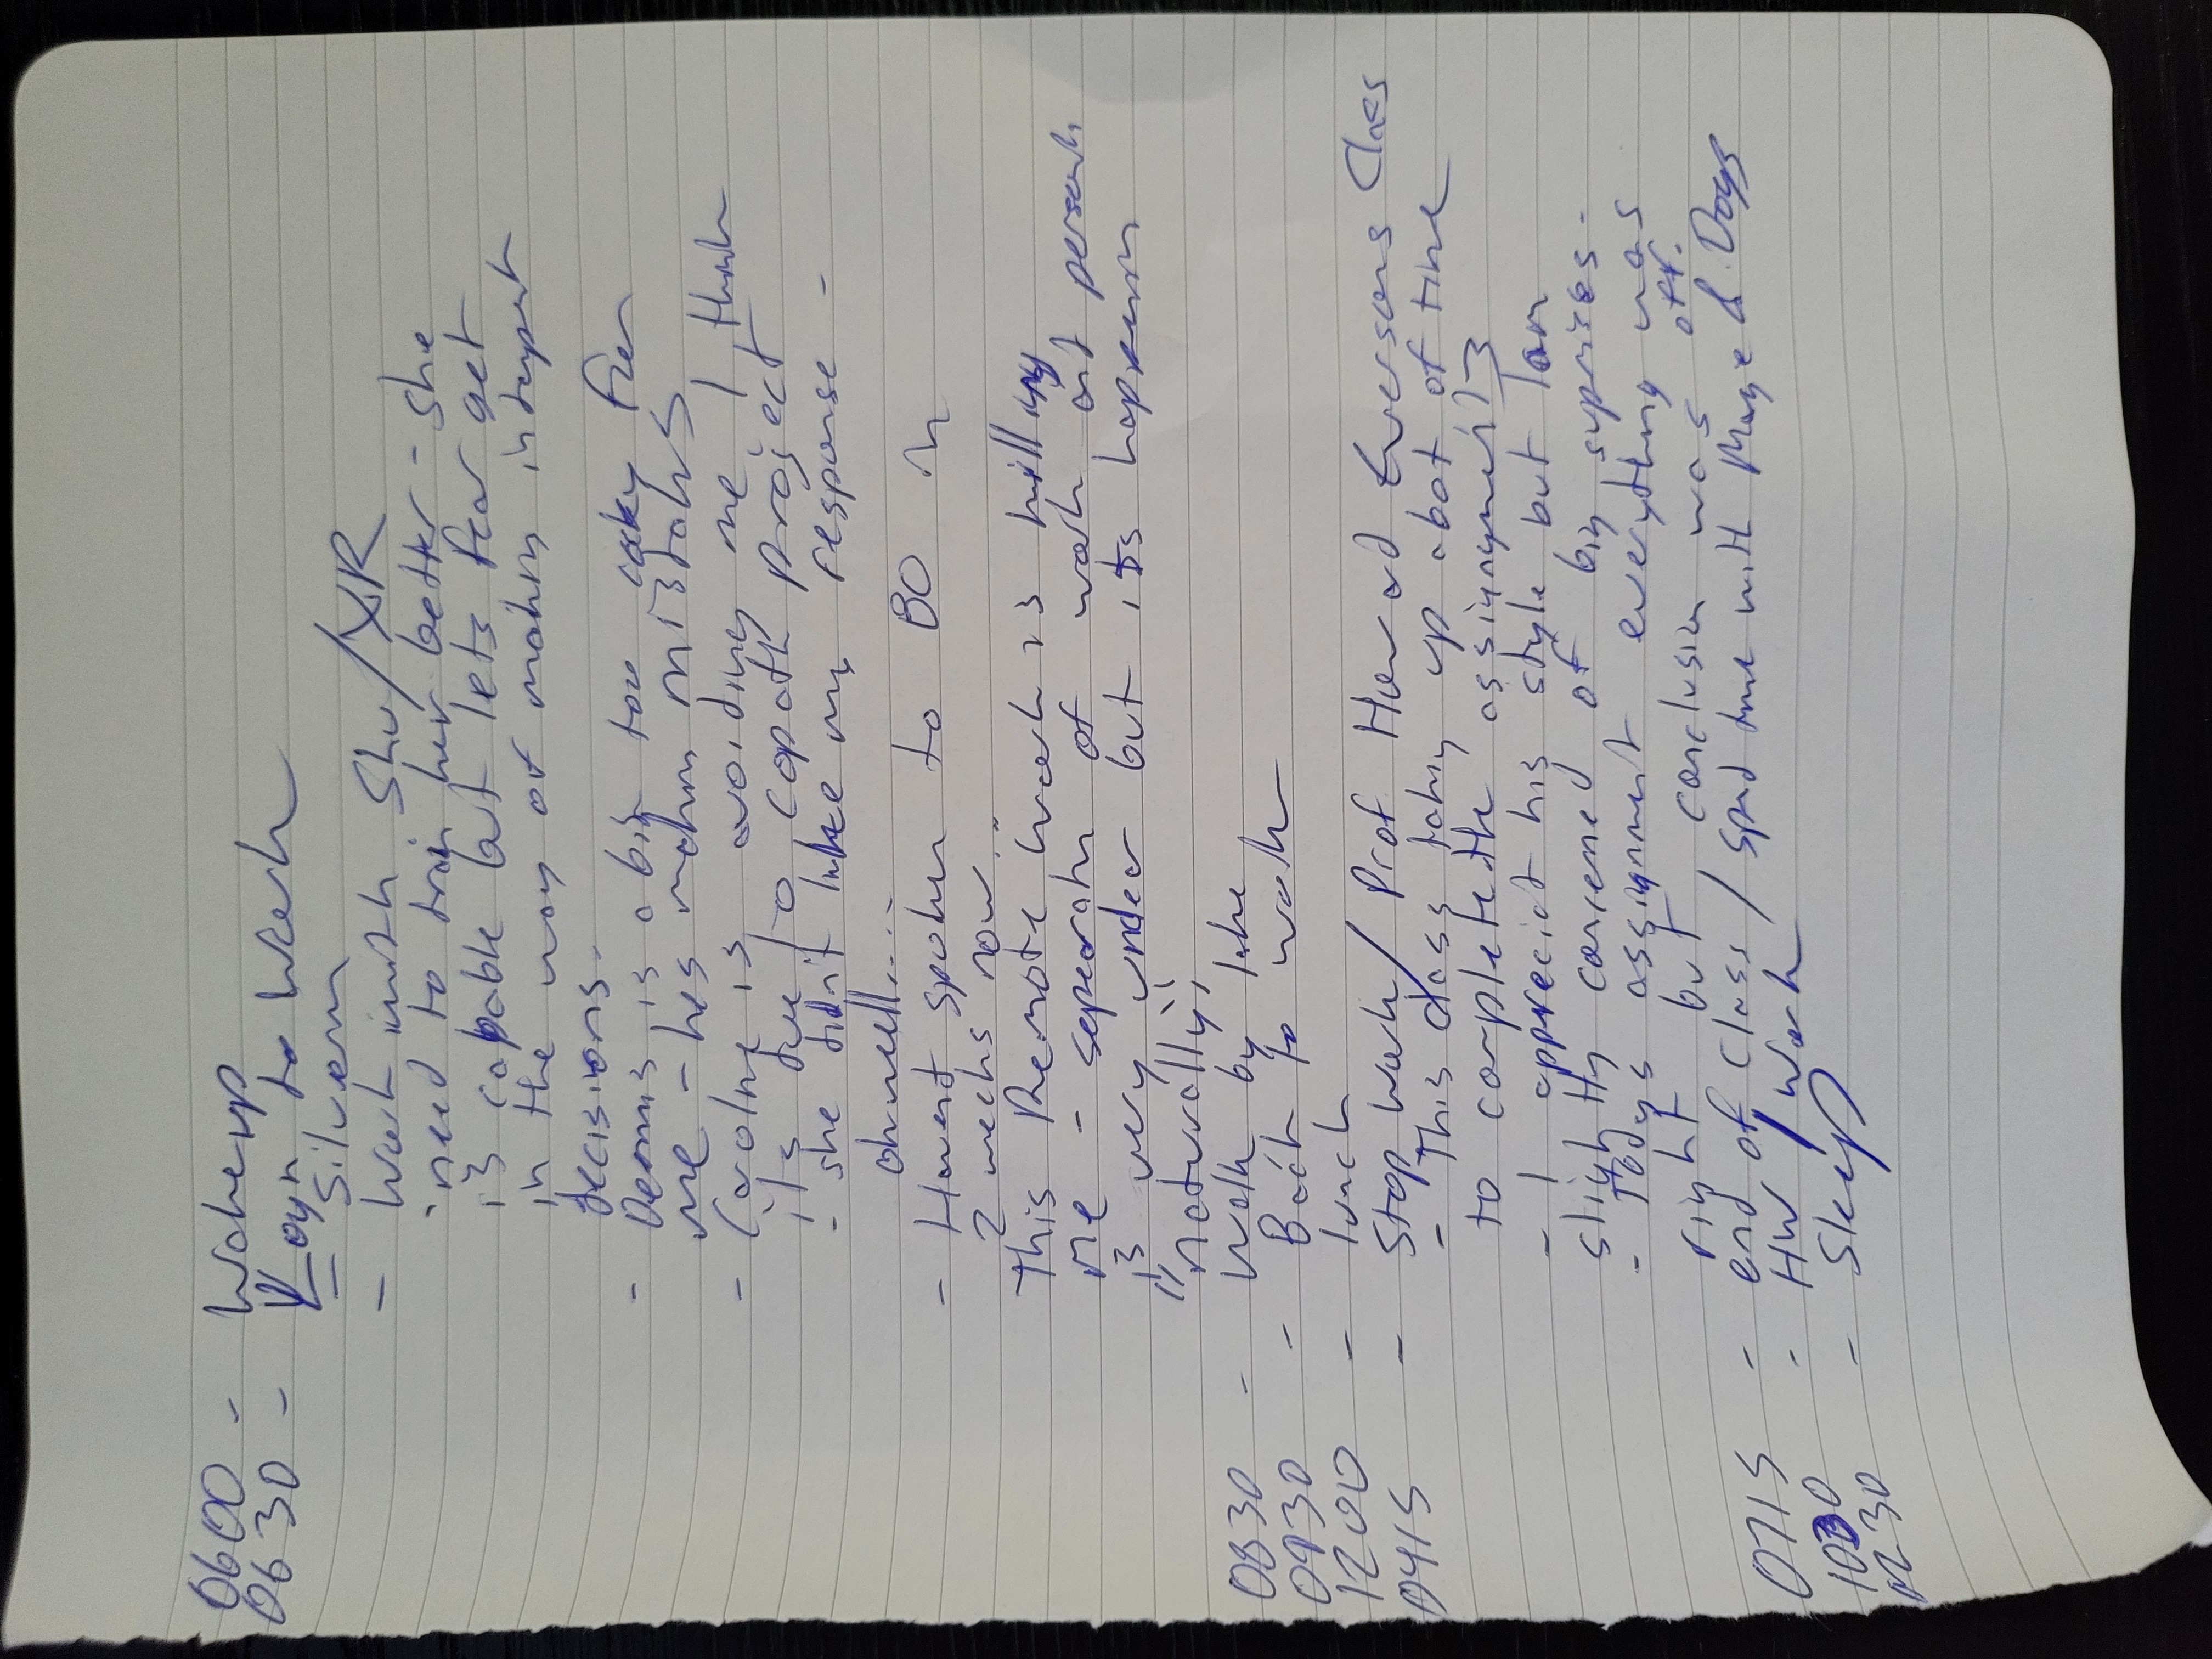 0600 - Wakeup
0630 - Login to Work
-
- Work with Shu/XR
need to train her better - she
is capable but lets fear get
in the way of making
decisions.
- Dennis is a bit too cocky for
me - hes making mistakes
- Caroline is avoiding me, I think
its due to copath project
- she didn't like my response -
oh well....
- Havent spoken to BO in
2 weeks now...
This Remote Work is killing
me - of work and
is very but its happening
"naturally";
0830 - Walk by lake
0930 - Back to work
1200 - lunch
0415 - Stop Work / Prof Howard Eversons Class
- This class taking up alot of time
to complete the assignments
- I appreciat his style but I am
slightly concerned of big suprises.
- Todays assignment everything was
right but conclusion was off.
0715 - end of Class / Spend time with & Dogs
1030 - HW / Work
1230 - Sleep